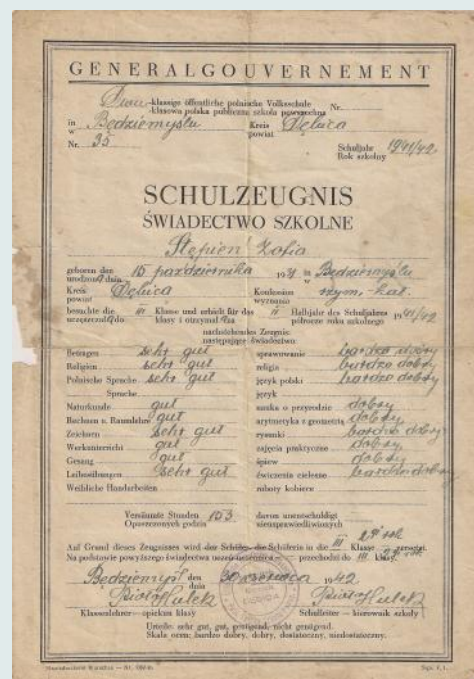 GENERALGOUVERNEMENT
Dwu-klassige öffentliche polnische Volksschule Nr.
klasowa polska publiczna szkoła powszechna
in Będziemyślu Kreis Dębica
w powiat
Nr. 35 Schuljahr 1941/42
Rok szkolny
SCHULZEUGNIS
ŚWIADECTWO SZKOLNE
Stępień Zofia
geboren den 15 października 19 in Będziemyślu
urodzona dnia w
Kreis Dębica Konfession rzym.-kat.
powiat wyznanie
besuchte die III Klasse und erhielt für das II Halbjahr des Schuljahres 1941/42
uczęszczała do klasy i otrzymała za półrocze roku szkolnego
nachstehendes Zeugnis:
następujące świadectwo:
Betragen sehr gut sprawowanie bardzo dobry
Religion sehr gut religia bardzo dobry
Polnische Sprache sehr gut język polski bardzo dobry
Sprache język
Naturkunde gut nauka o przyrodzie dobry
Rechnen u. Raumlehre gut arytmetyka z geometrią dobry
Zeichnen sehr gut rysunki bardzo dobry
Werkunterricht gut zajęcia praktyczne dobry
Gesang gut śpiew dobry
Leibesübungen sehr gut ćwiczenia cielesne bardzo dobry
Weibliche Handarbeiten roboty kobiece
Versäumte Stunden 153 davon unentschuldigt
Opuszczonych godzin nieusprawiedliwionych
Auf Grund dieses Zeugnisses wird der Schüler-die Schülerin in die III Klasse versetzt.
Na podstawie powyższego świadectwa przechodzi do III klasy 2gi rok
Będziemyśl den 30 czerwca 1942
dnia
Piotr Hulek Piotr Hulek
Klassenlehrer — opiekun klasy Schulleiter — kierownik szkoły
Urteile: sehr gut, gut, genügend, nicht genügend.
Skala ocen: bardzo dobry, dobry, dostateczny, niedostateczny.